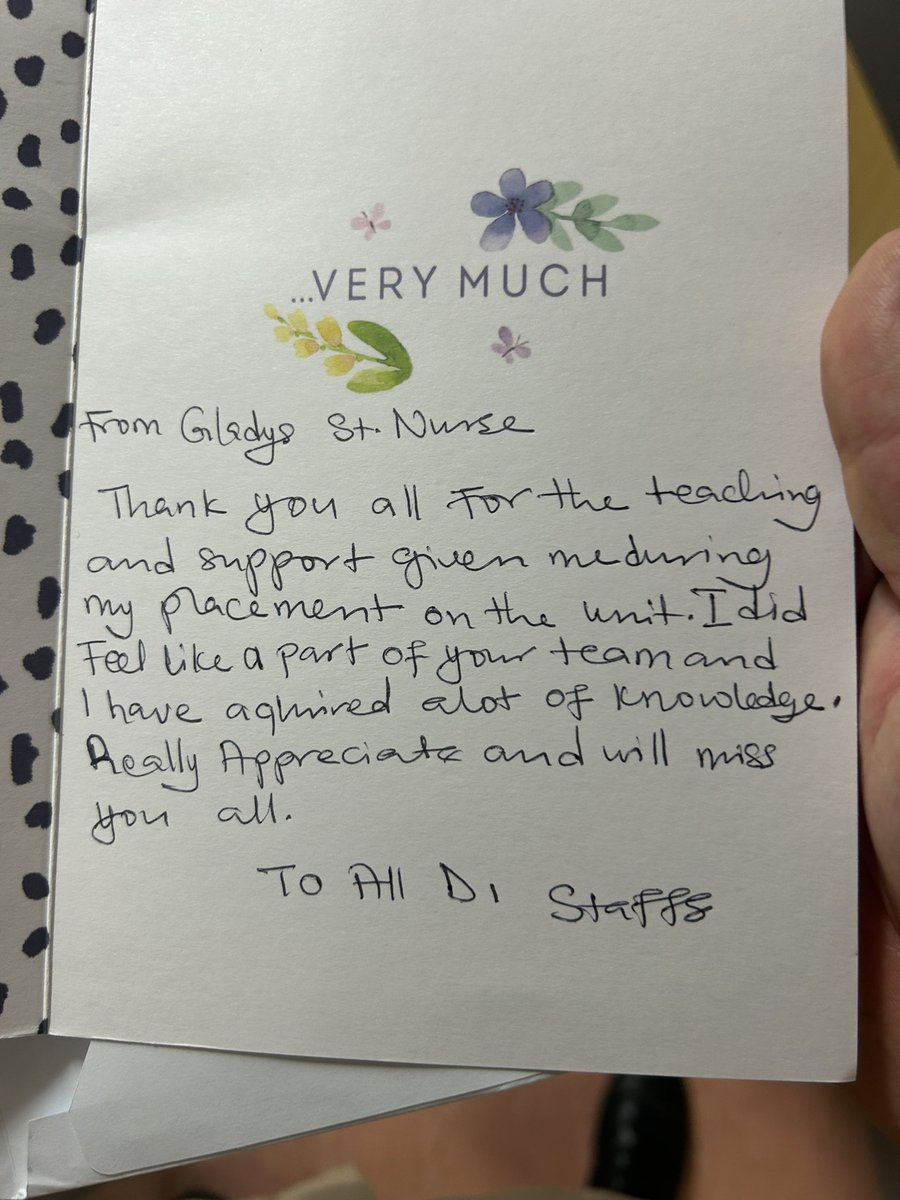 ...VERY MUCH
From Gladys St. Nurse
Thank you all For the teaching
and support given me during
my placement on the unit. I did
Feel like a part of your team and
I have aquired alot of knowledge.
Really Appreciate and will miss
you all.
To All D1 Staffs